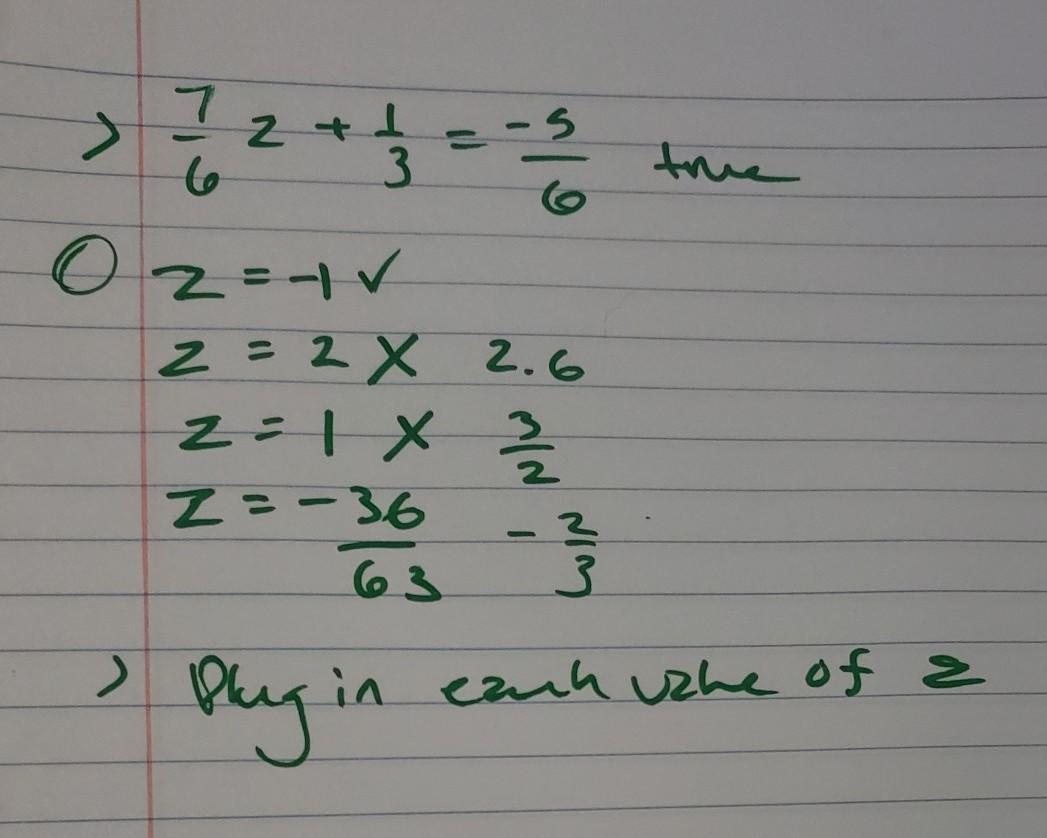 > 7/6 z + 1/3 = -5/6 true
O z = -1 ✓
z = 2 X 2.6
z = 1 X 3/2
z = -36/63 -2/3
> Plug in each value of z